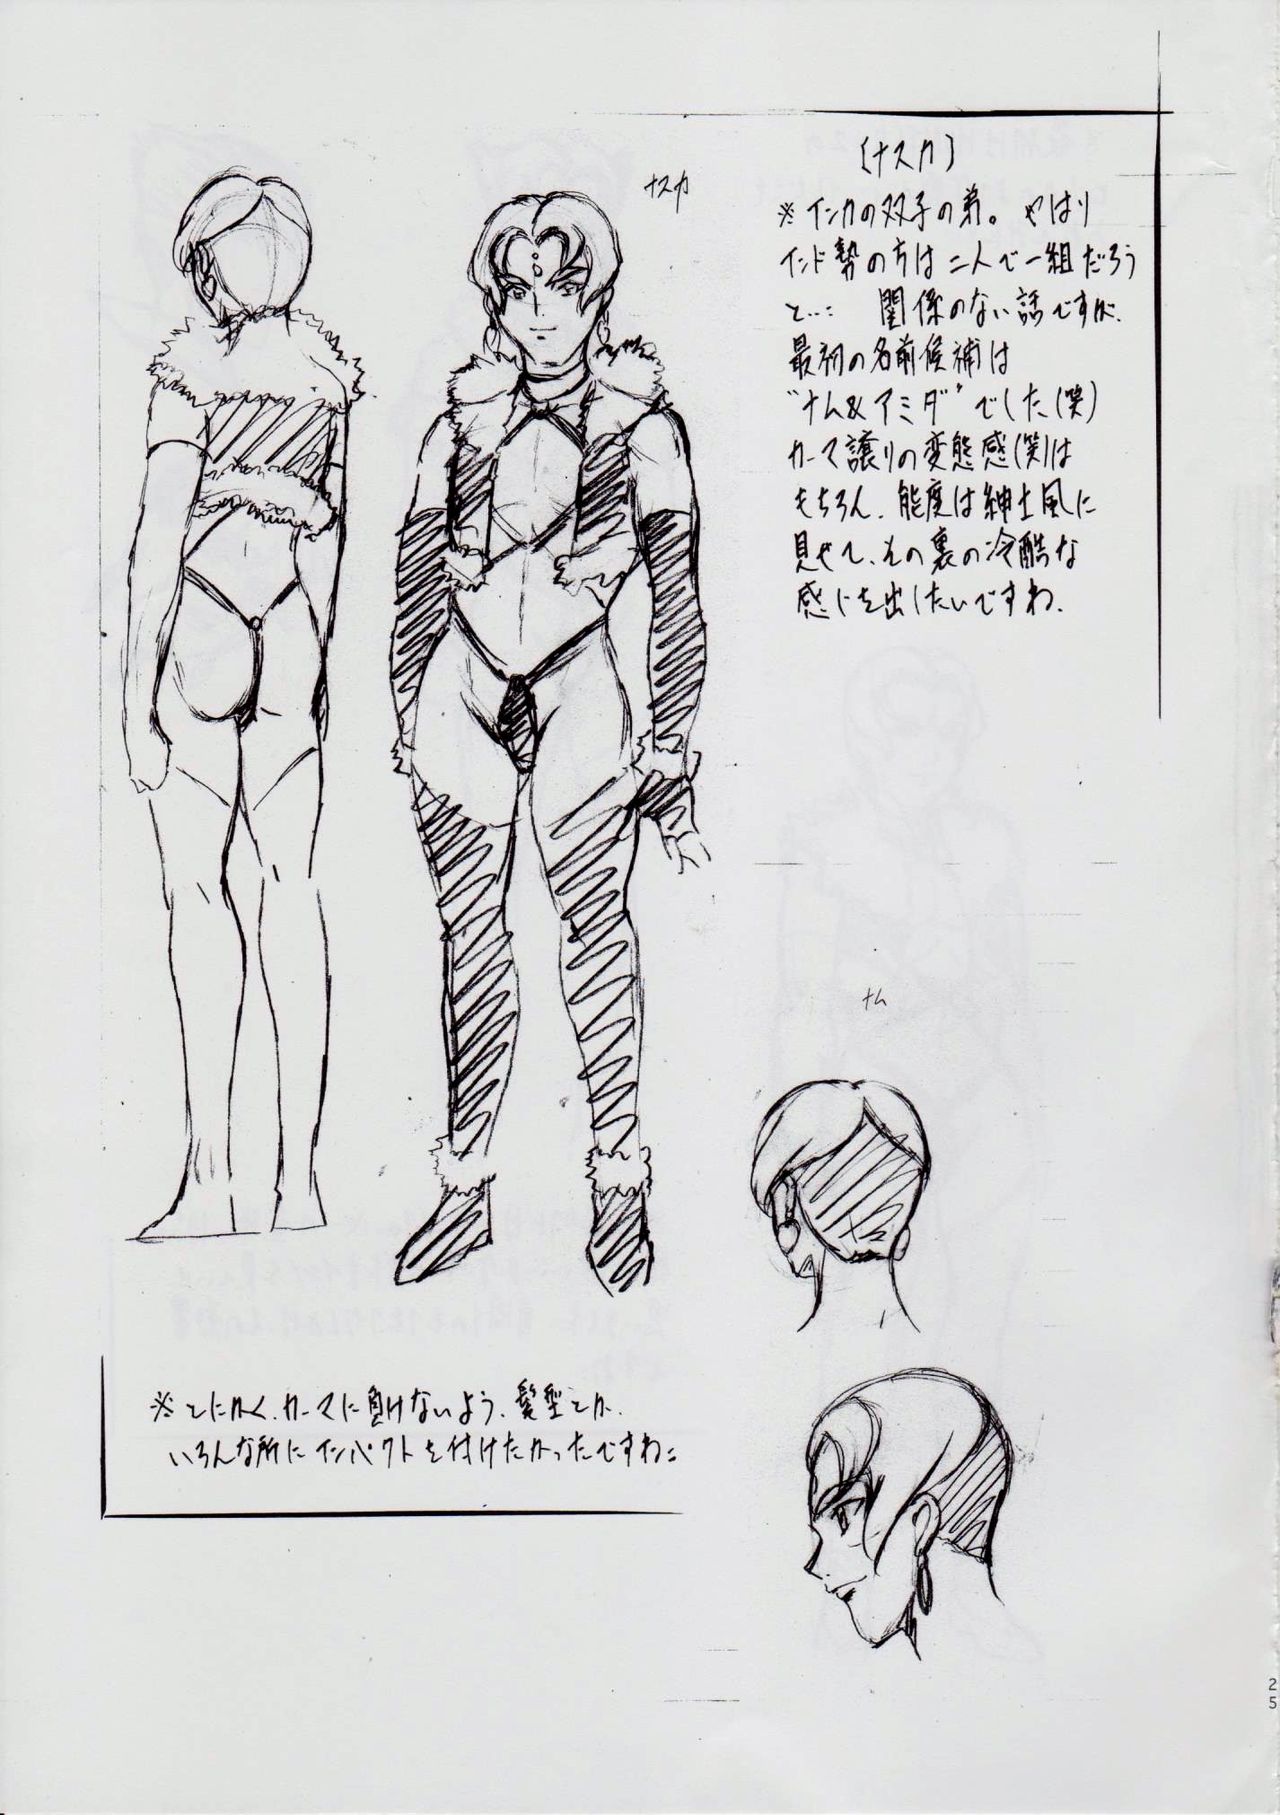 (ナスカ)
ナスカ
※インカの双子の弟。やはり
インド勢の方は二人で一組だろう
と…: 関係のない話ですが、
最初の名前候補は
"ナム&アミダ"でした(笑)
カーマ譲りの変態感(笑)は
もちろん、態度は紳士風に
見せて、その裏の冷酷な
感じを出したいですね、
ナム
※とにかく、カーマに負けないよう、髪型とか、
いろんな所にインパクトを付けたかったですね。
25